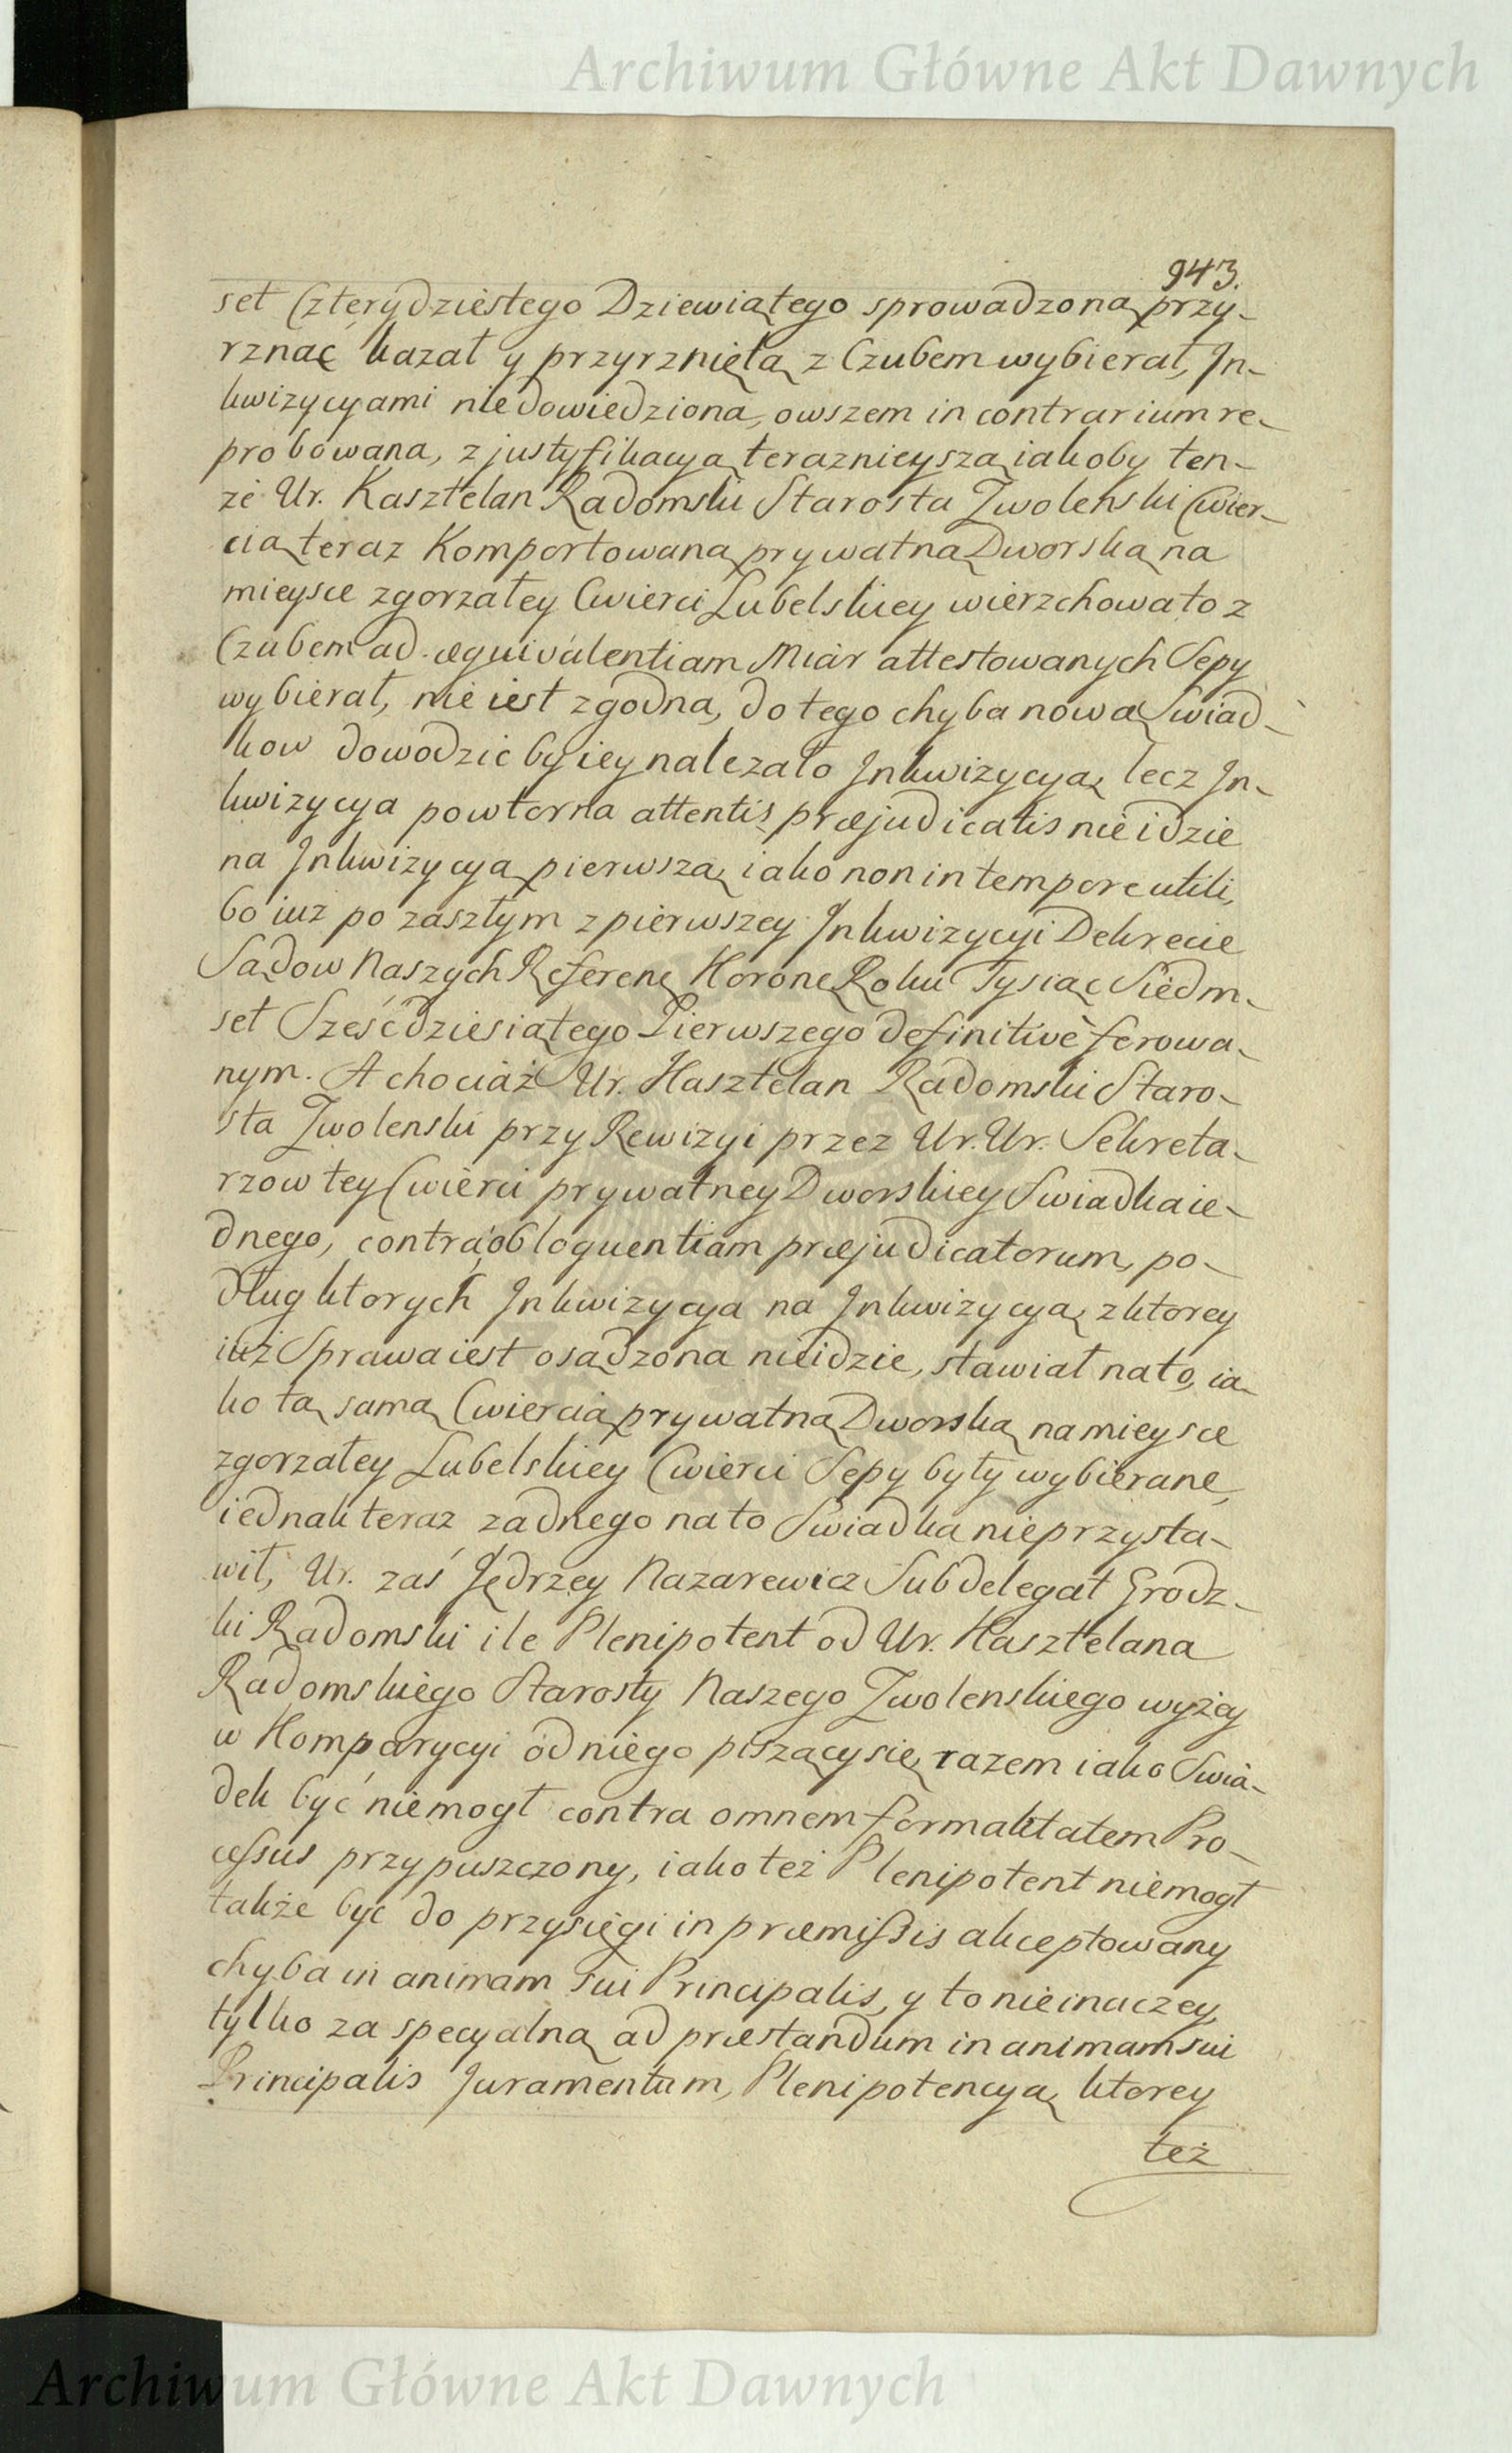 Archiwum Główne Akt Dawnych
943.
set Czterydziestego Dziewiątego sprowadzoną przy-
rznąć kazał y przyrzniętą z Czubem wybierał, In-
kwizycyami niedowiedziona, owszem in contrarium re-
probowana, z justyfikacyą teraznieyszą iakoby ten-
że Ur. Kasztelan Radomski Starosta Zwolenski Cwier-
cią teraz Komportowaną prywatną Dworską na
mieysce zgorzałey Cwierci Lubelskiey wierzchowato z
Czubem ad æquivalentiam Miar attestowanych Sepy
wybierał, nie iest zgodna, do tego chyba nową Swiad-
kow dowodzic by iey nalezało Inkwizycyą, lecz In-
kwizycya powtorna attentis præjudicatis nie idzie
na Inkwizycyą pierwszą, iako non in tempore utili,
bo iuz po zaszłym z pierwszey Inkwizycyi Dekrecie
Sądow Naszych Referenc Koronc Roku Tysiąc Siedm-
set Sześćdziesiątego Pierwszego definitivè ferowa-
nym. A chociaż Ur. Kasztelan Radomski Staro-
sta Zwolenski przy Rewizyi przez Ur. Ur. Sekreta-
rzow tey Cwierci prywatney Dworskiey Swiadka ie-
dnego, contra obloquentiam præjudicatorum, po-
dług ktorych Inkwizycya na Inkwizycyą, z ktorey
iuż Sprawa iest osądzona nie idzie, stawiał na to, ia-
ko tą samą Cwiercią prywatną Dworską na mieysce
zgorzałey Lubelskiey Cwierci Sepy były wybierane,
iednak teraz zadnego na to Swiadka nieprzysta-
wił, Ur. zaś Jędrzey Nazarewicz Subdelegat Grodz-
ki Radomski ile Plenipotent od Ur. Kasztelana
Radomskiego Starosty Naszego Zwolenskiego wyżey
w Komparycyi od niego piszący się, razem iako Swia-
dek być niemogł contra omnem formalitatem Pro-
cessus przypuszczony, iako też Plenipotent niemogł
także być do przysięgi in præmissis akceptowany
chyba in animam sui Principalis, y to nie inaczey,
tylko za specyalną ad præstandum in animam sui
Principalis Juramentum, Plenipotencyą, ktorey
też
Archiwum Główne Akt Dawnych